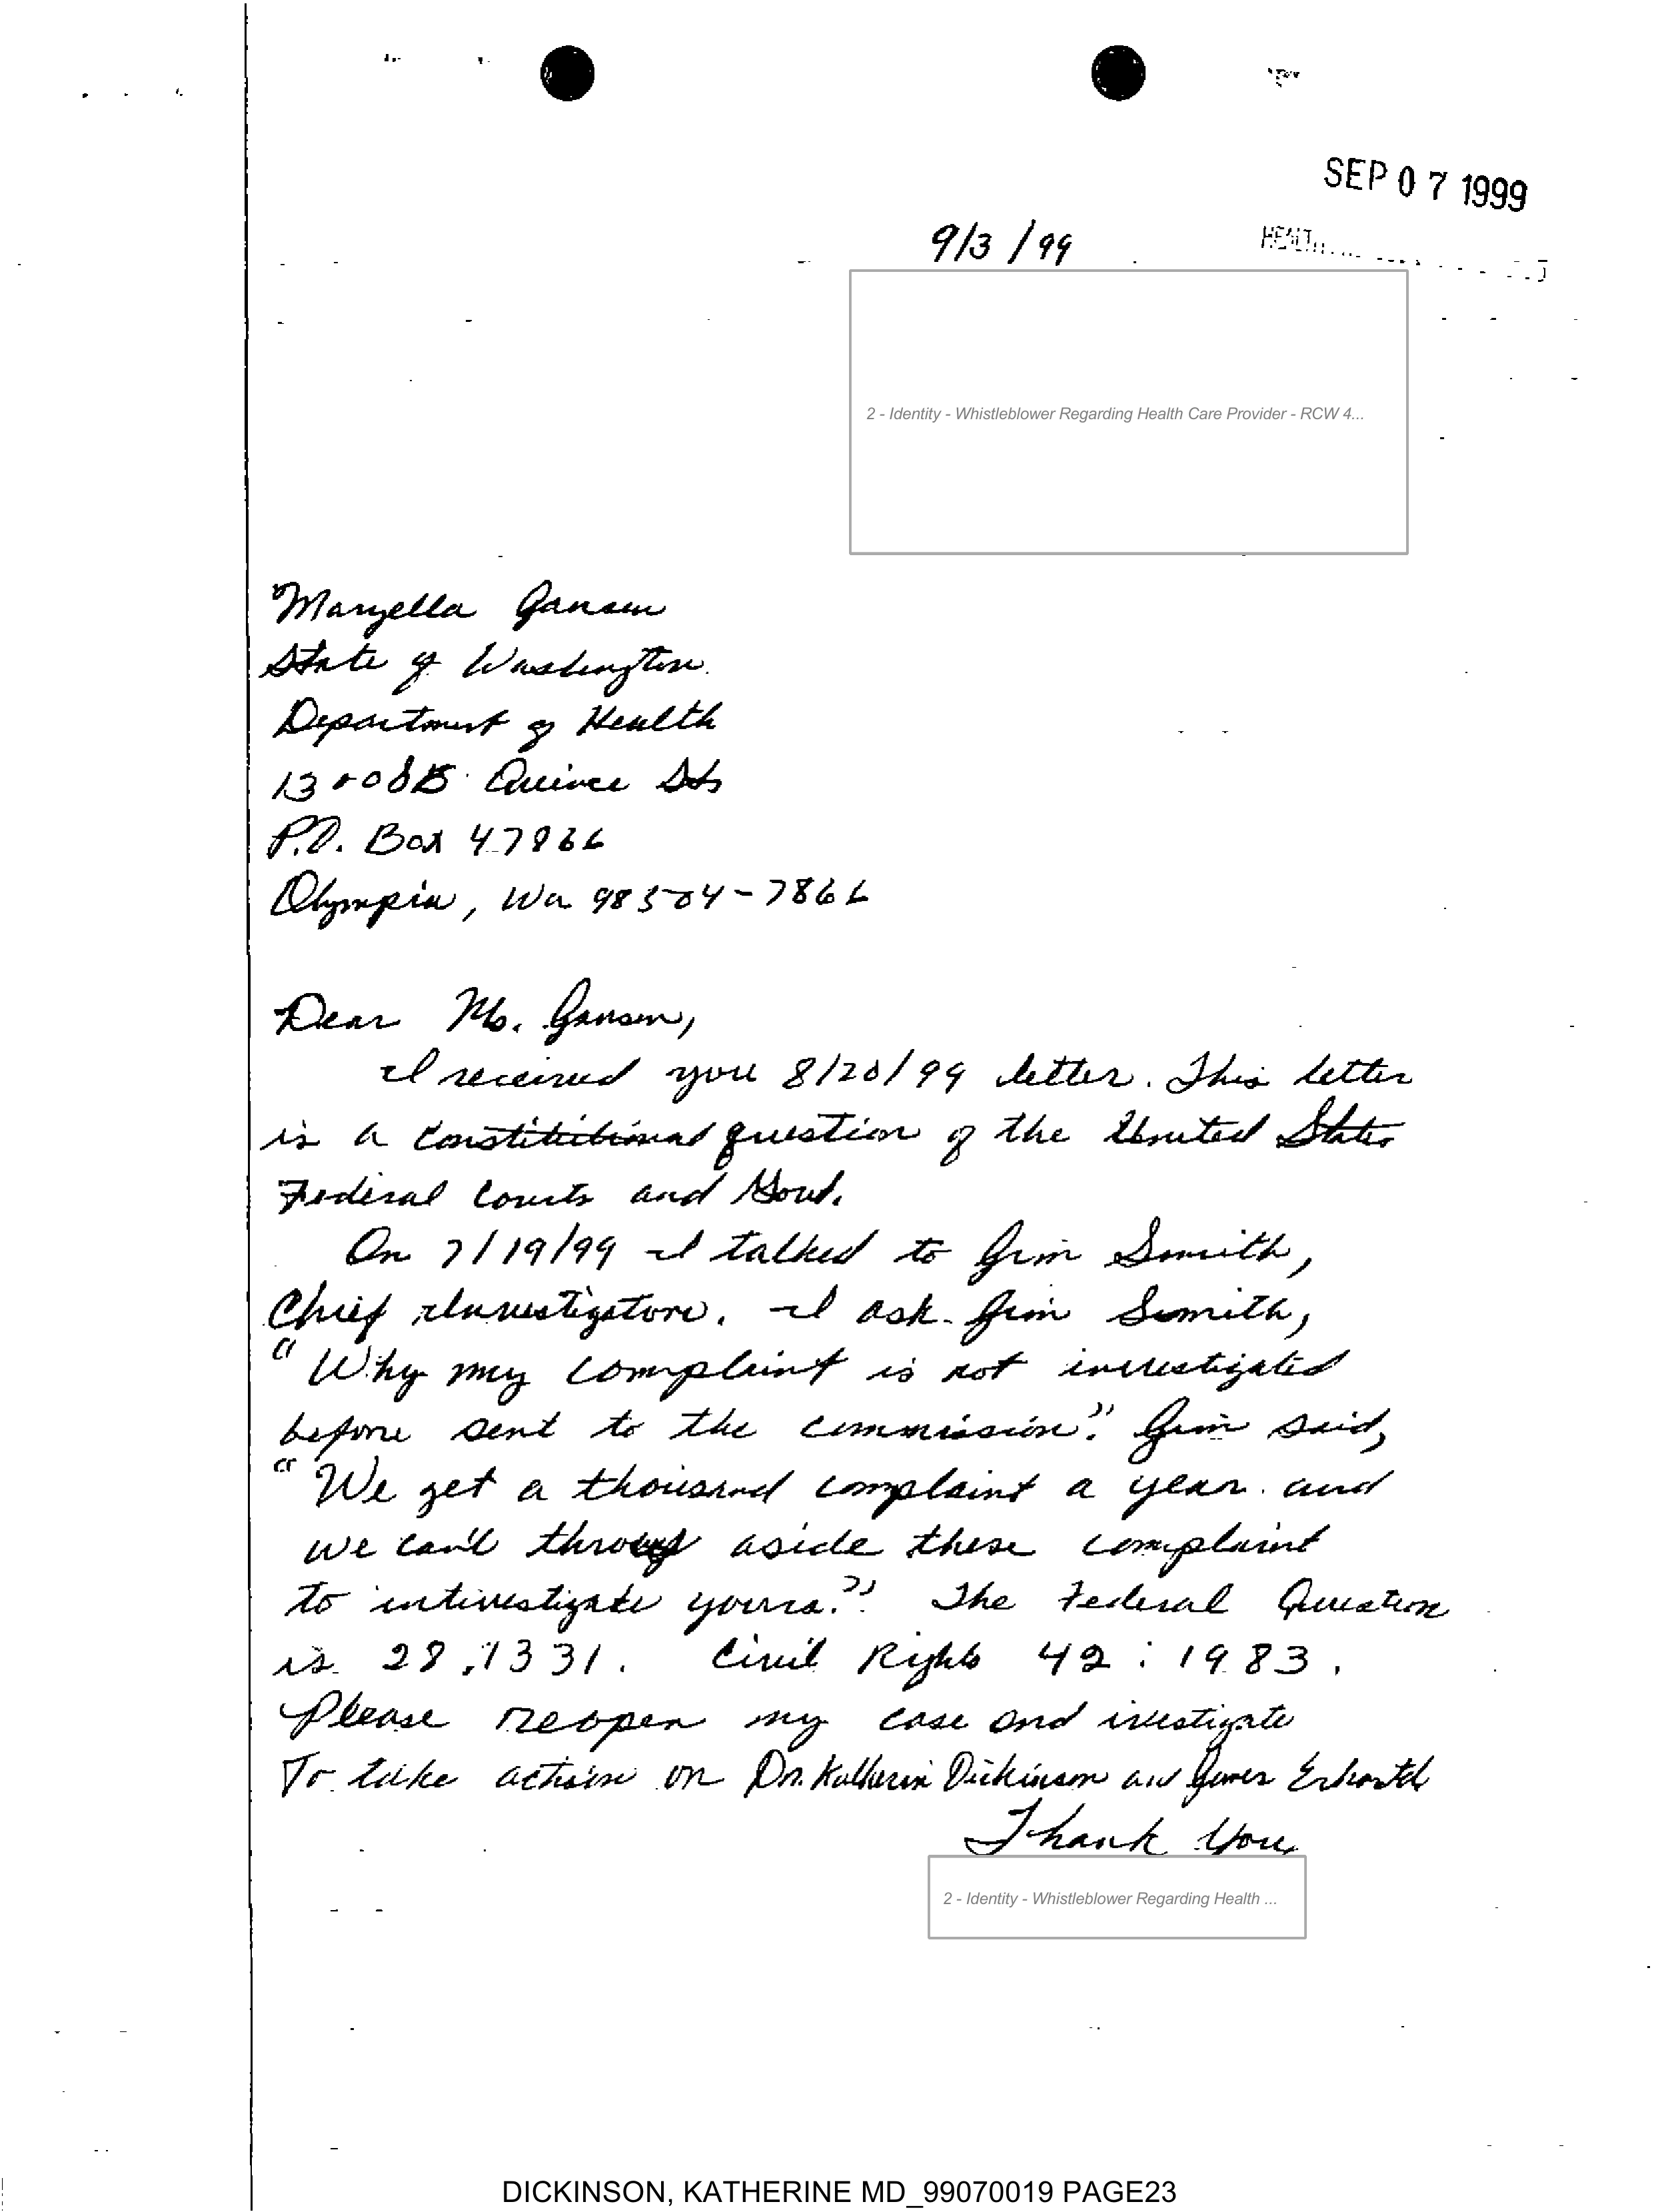 SEP 07 1999
9/3/99
2 - Identity - Whistleblower Regarding Health Care Provider - RCW 4...
Maryella Jansen
State of Washington
Department of Health
1300 SE Quince St
P.O. Box 47866
Olympia, Wa 98504-7866
Dear Ms. Jansen,
I received you 8/20/99 letter. This letter
is a Constitutional question of the United States
Federal Courts and Govt.
On 7/19/99 I talked to Jim Smith,
Chief Investigatore. I ask Jim Smith,
"Why my complaint is not investigated
before sent to the commission". Jim said,
"We get a thousand complaint a year and
we can't throw aside these complaint
to intivestigate yours.". The Federal Question
is 28:1331. Civil Rights 42:1983.
Please reopen my case and ivestigate
To take action on Dr. Katherin Dickinson and James
Thank You,
2 - Identity - Whistleblower Regarding Health ...
DICKINSON, KATHERINE MD_99070019 PAGE23